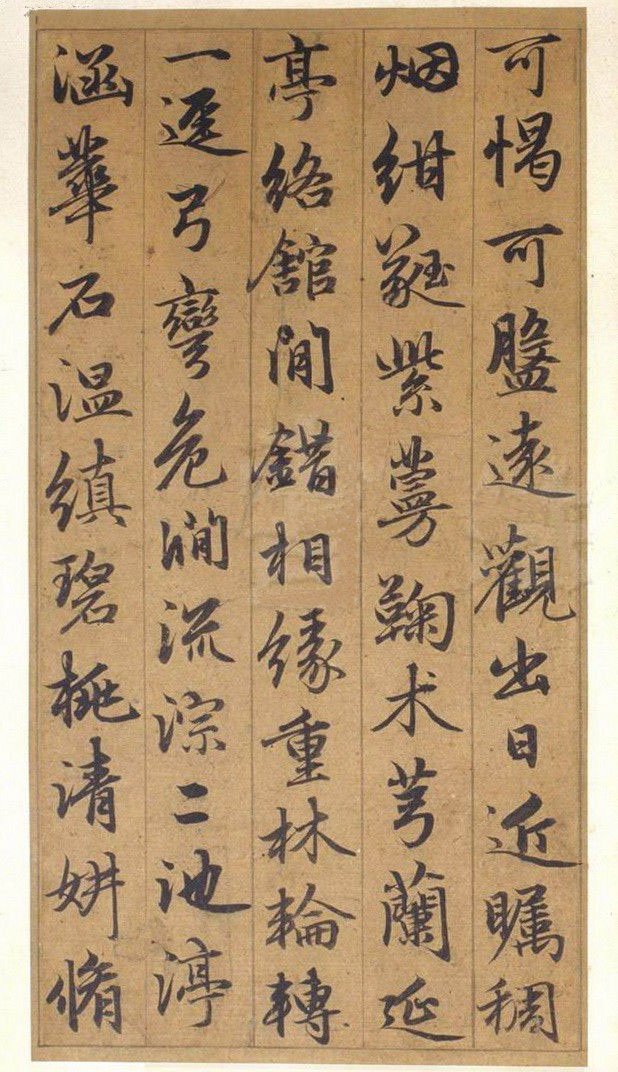 可惕可盤遠觀出日近矚稠
烟紺蕤紫蔓鞠术芎蘭延
亭絡館間錯相緣重林輪轉
一逕弓彎危澗流淙二池渟
涵華石温縝碧桃清妍脩